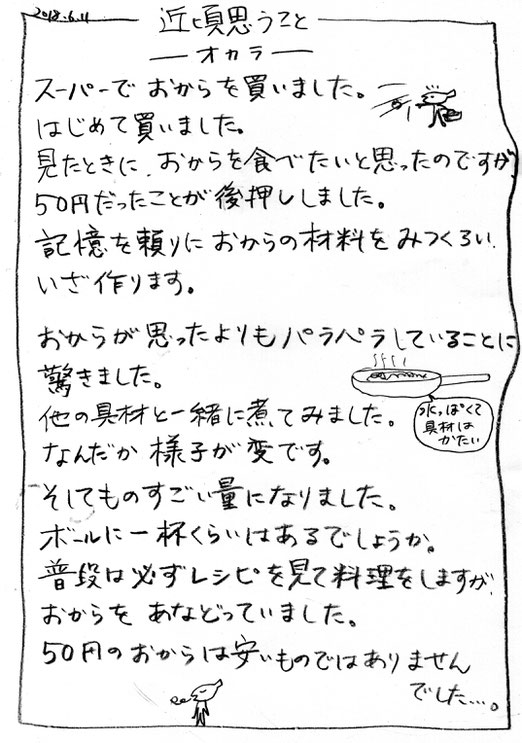 2018.6.11
近頃思うこと
―オカラ―
スーパーで おからを買いました。
はじめて買いました。
見たときに、おからを食べたいと思ったのですが、
50円だったことが後押ししました。
記憶を頼りに おからの材料を みつくろい、
いざ作ります。
おからが思ったよりもパラパラしていることに
驚きました。
他の具材と一緒に煮てみました。
なんだか 様子が変です。
水っぽくて
具材は
かたい
そしてものすごい量になりました。
ボールに一杯くらいはあるでしょうか。
普段は必ずレシピを見て料理をしますが、
おからを あなどっていました。
50円のおからは安いものではありません
でした…。